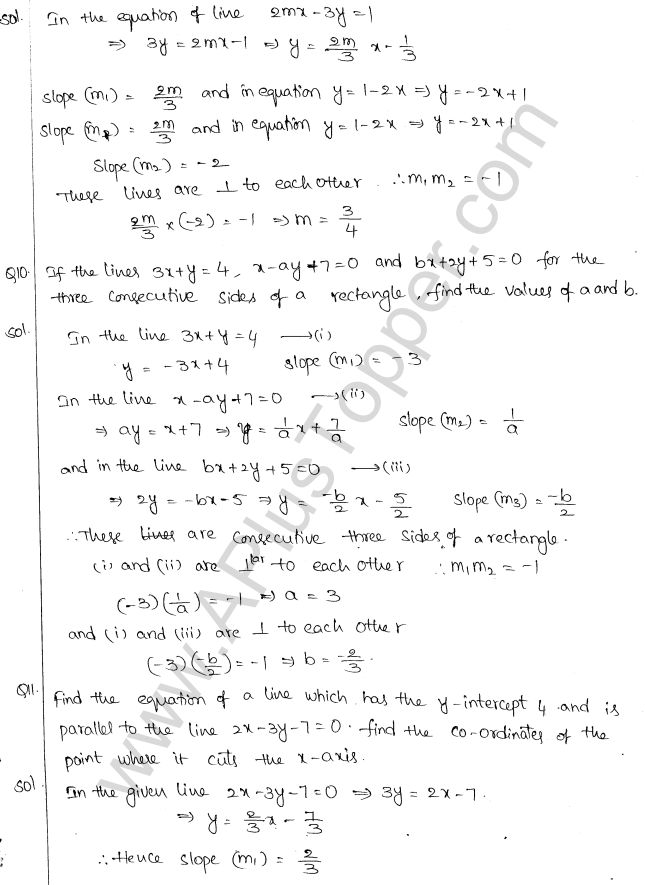 Sol. In the equation of line 2mx - 3y = 1
⇒ 3y = 2mx - 1 ⇒ y = 2m/3 x - 1/3
Slope (m₁) = 2m/3 and in equation y = 1 - 2x ⇒ y = -2x + 1
Slope (m₂) = 2m/3 and in equation y = 1 - 2x ⇒ y = -2x + 1
Slope (m₂) = -2
These lines are ⊥ to each other ∴ m₁m₂ = -1
2m/3 × (-2) = -1 ⇒ m = 3/4
Q10. If the lines 3x + y = 4, x - ay + 7 = 0 and bx + 2y + 5 = 0 for the
three consecutive sides of a rectangle, find the values of a and b.
Sol. In the line 3x + y = 4 ⟶ (i)
y = -3x + 4 slope (m₁) = -3
In the line x - ay + 7 = 0 ⟶ (ii)
⇒ ay = x + 7 ⇒ y = 1/a x + 7/a slope (m₂) = 1/a
and in the line bx + 2y + 5 = 0 ⟶ (iii)
⇒ 2y = -bx - 5 ⇒ y = -b/2 x - 5/2 Slope (m₃) = -b/2
∴ These lines are consecutive three sides of a rectangle.
(i) and (ii) are ⊥lar to each other ∴ m₁m₂ = -1
(-3)(1/a) = -1 ⇒ a = 3
and (i) and (iii) are ⊥ to each other
(-3)(-b/2) = -1 ⇒ b = -2/3.
Q11. Find the equation of a line which has the y-intercept 4 and is
parallel to the line 2x - 3y - 7 = 0. find the co-ordinates of the
point where it cuts the x-axis.
Sol. In the given line 2x - 3y - 7 = 0 ⇒ 3y = 2x - 7.
⇒ y = 2/3 x - 7/3
∴ Hence slope (m₁) = 2/3
www.APlusTopper.com